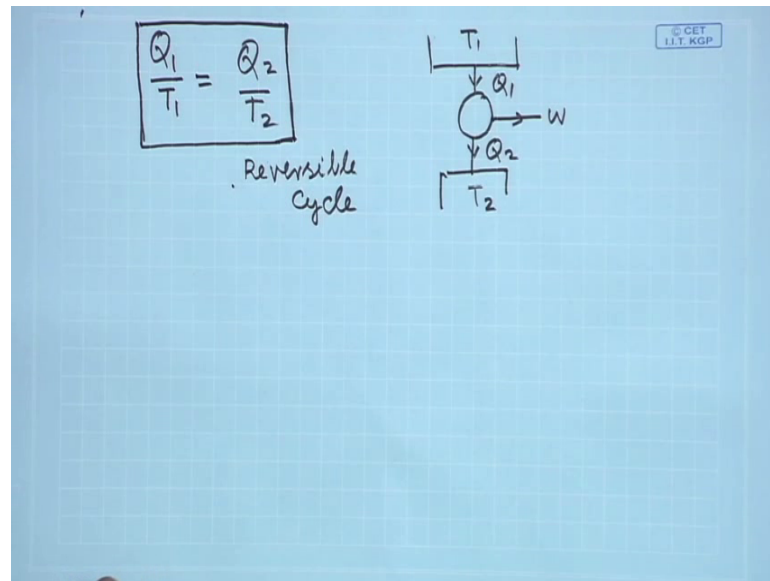 © CET
I.I.T. KGP
Q₁/T₁ = Q₂/T₂
Reversible
Cycle
T₁
Q₁
W
Q₂
T₂